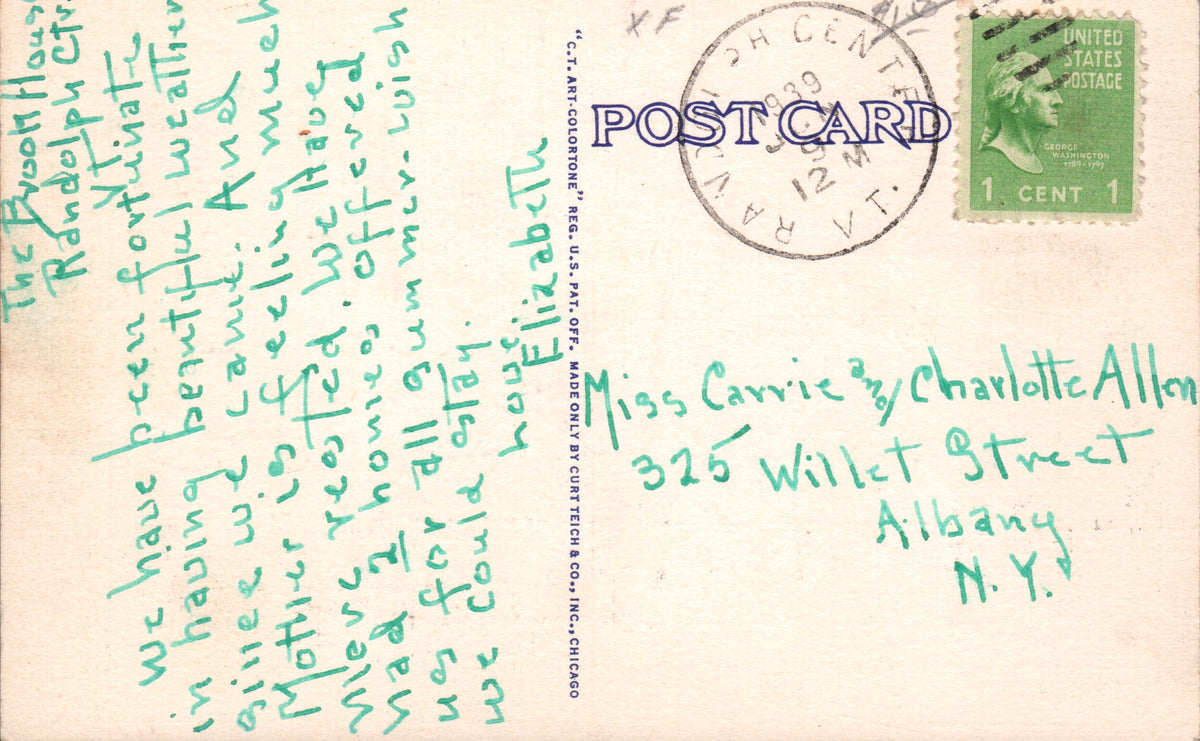 The Brook House
Randolph Ctr.
VT.
we have been fortunate
in having beautiful weather
since we came. And
Mother is feeling much
more rested. we have
had 2 homes offered
us for all summer. wish
we could stay.
Love
Elizabeth
"C.T. ART-COLORTONE" REG. U.S. PAT. OFF. MADE ONLY BY CURT TEICH & CO., INC., CHICAGO
XF
POST CARD
RANDOLPH CENTER
1939
12 M
VT.
UNITED
STATES
POSTAGE
GEORGE
WASHINGTON
1789-1797
1 CENT 1
Miss Carrie and Charlotte Allen
325 Willet Street
Albany
N.Y.